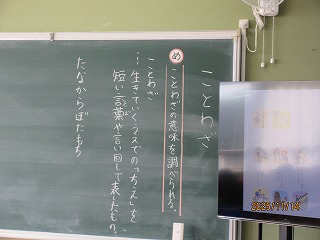 ことわざ
め
ことわざの意味を調べられる。
ことわざ
…生きていくうえでの「ちえ」を
短い言葉や言い回しで表したもの。
たなからぼたもち